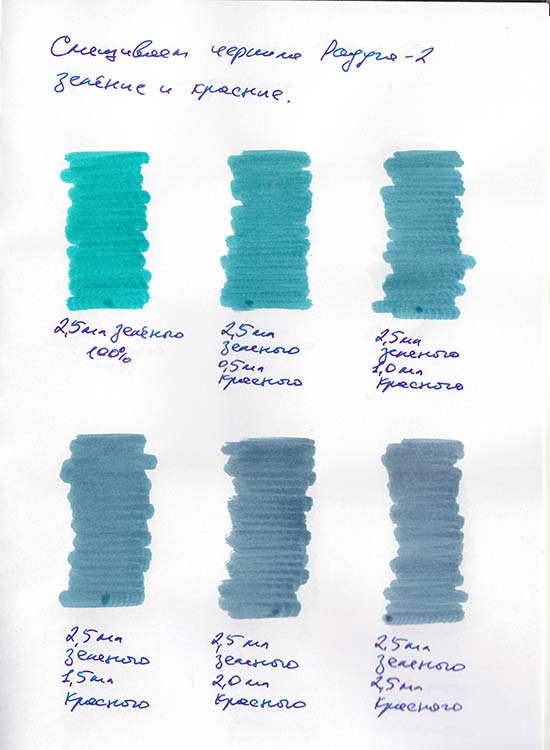 Смешиваем чернила Радуга-2
зелёные и красные.
2,5 мл зелёного
100%
2,5 мл
зеленого
0,5 мл
красного
2,5 мл
зеленого
1,0 мл
красного
2,5 мл
зеленого
1,5 мл
красного
2,5 мл
зеленого
2,0 мл
красного
2,5 мл
зеленого
2,5 мл
красного